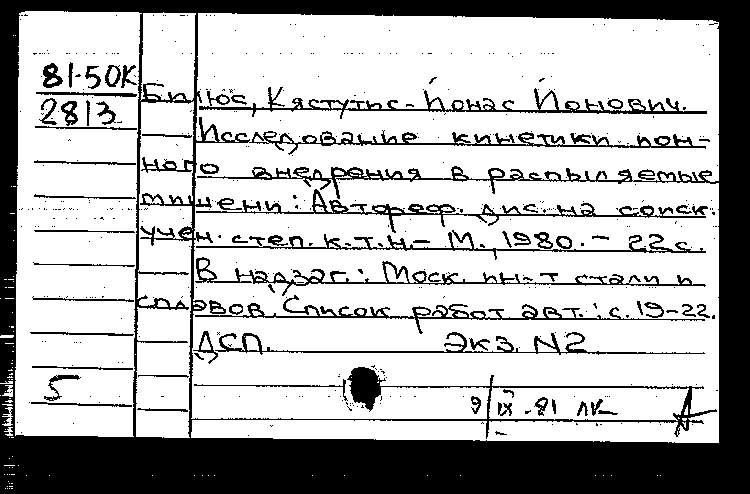 81-50К
2813
Билюс, Кястутис-Йонас Йонович.
Исследование кинетики ион-
ного внедрения в распыляемые
мишени: Автореф. дис. на соиск.
учен. степ. к.т.н.- М., 1980. - 22 с.
В надзаг.: Моск. ин-т стали и
сплавов. Список работ авт.: с. 19-22.
ДСП. Экз. N2
5
9/IX-81 ЛК